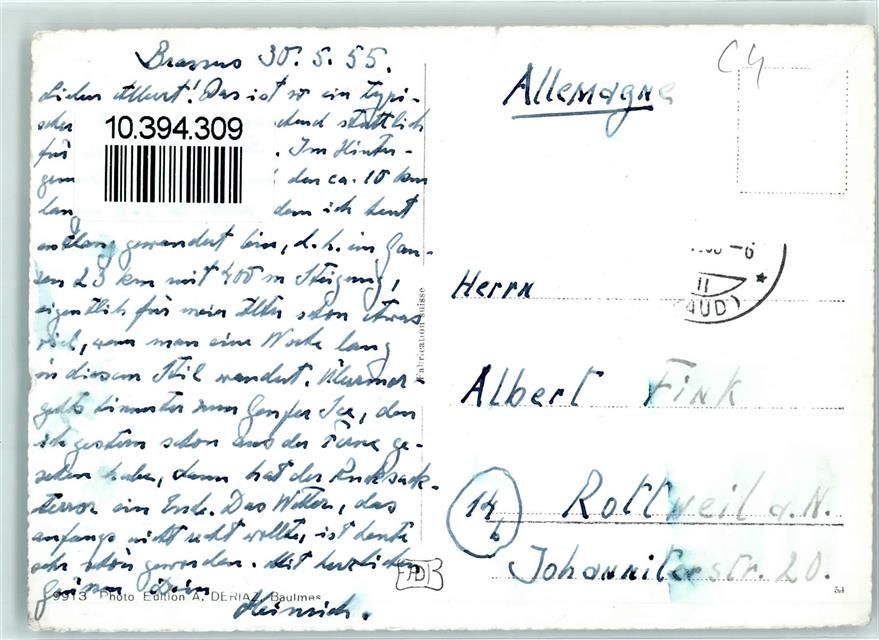 Brassus 30.5.55.
Lieber Albert! Das ist so ein typi-
scher
10.394.309
stattlich
für . Im Hinter-
der ca. 10 km
lang dem ich heut
entlang gewandert bin, d.h. im Gan-
zen 23 km mit 400 m Steigung,
eigentlich für mein Alter schon etwas
viel, wenn man eine Woche lang
in diesem Stil wandert. Nunmer
gehts hinunter zum Genfer See, den
ich gestern schon aus der Ferne ge-
sehen habe, dann hat der Rucksack-
terror ein Ende. Das Wetter, das
anfangs nicht recht wollte, ist heute
sehr schön geworden. Mit herzlichen
Grüssen Dein
Heinrich.
9913 Photo Edition A. DERIAZ, Baulmes
Fabrication suisse
C4
Allemagne
-6
II
AUD)
Herrn
Albert Fink
14
b
Rottweil a.N.
Johanniterstr. 20.